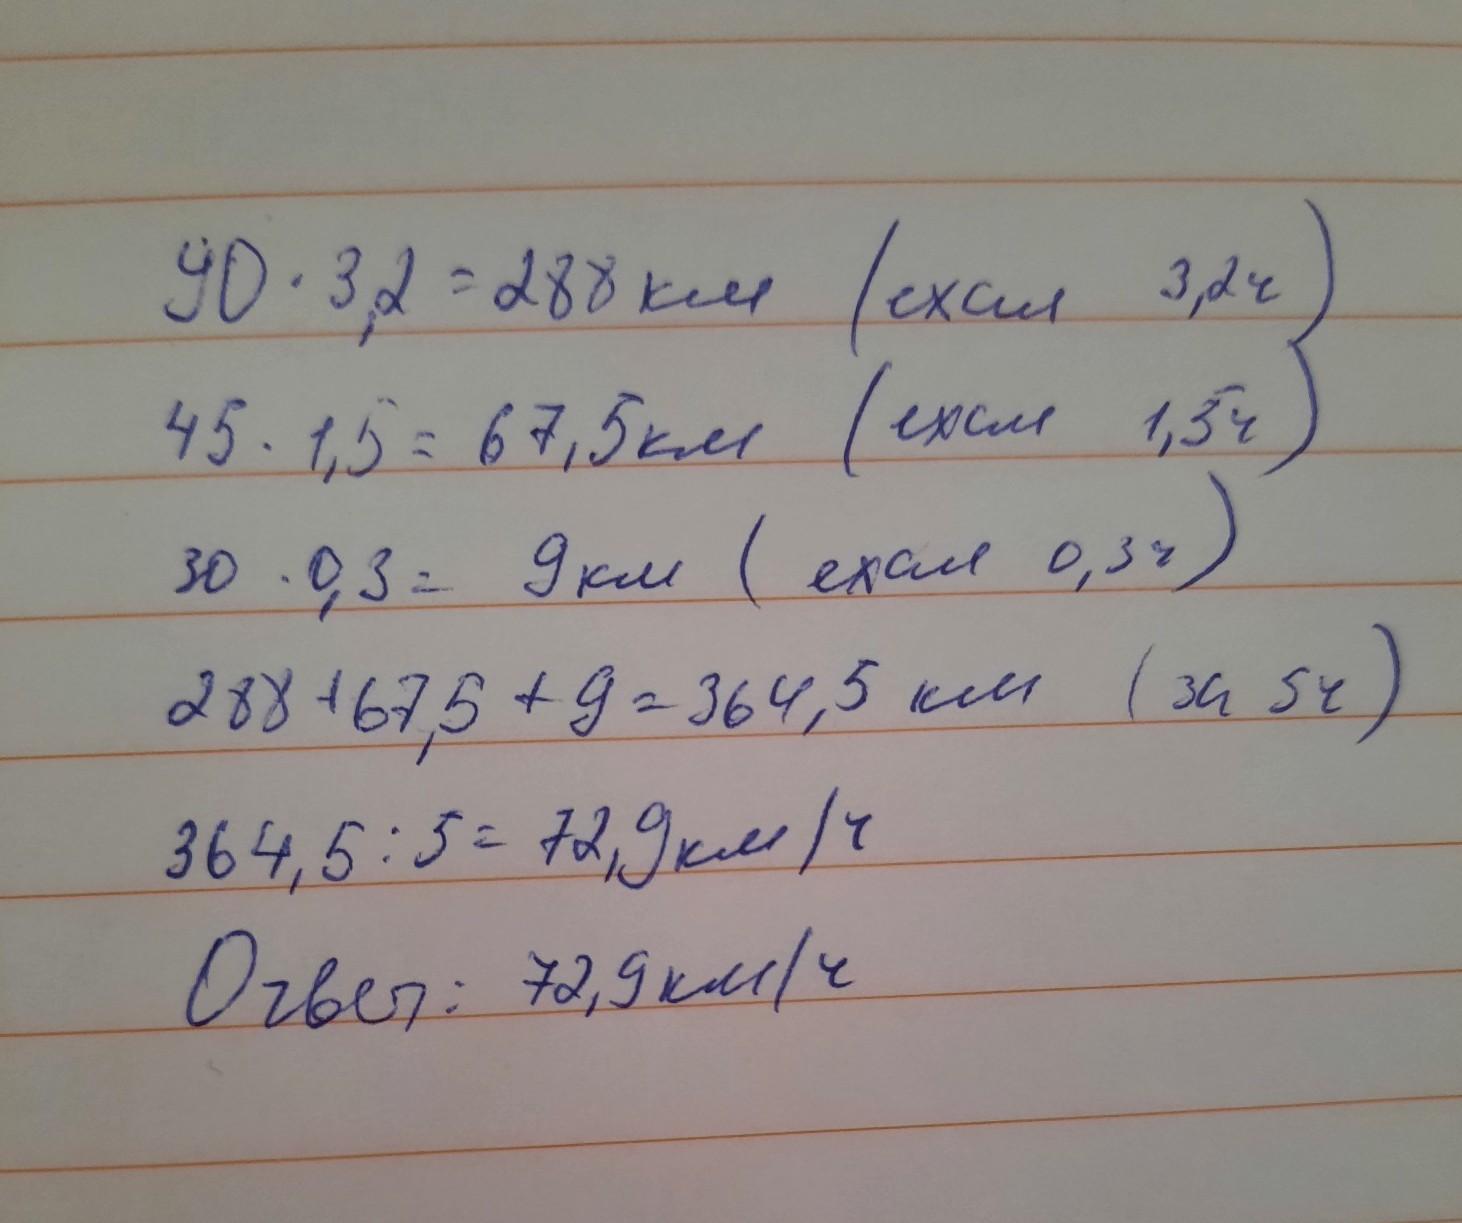 90 · 3,2 = 288 км (ехал 3,2ч)
45 · 1,5 = 67,5км (ехал 1,5ч)
30 · 0,3 = 9км (ехал 0,3ч)
288 + 67,5 + 9 = 364,5 км (за 5ч)
364,5 : 5 = 72,9км/ч
Ответ: 72,9км/ч